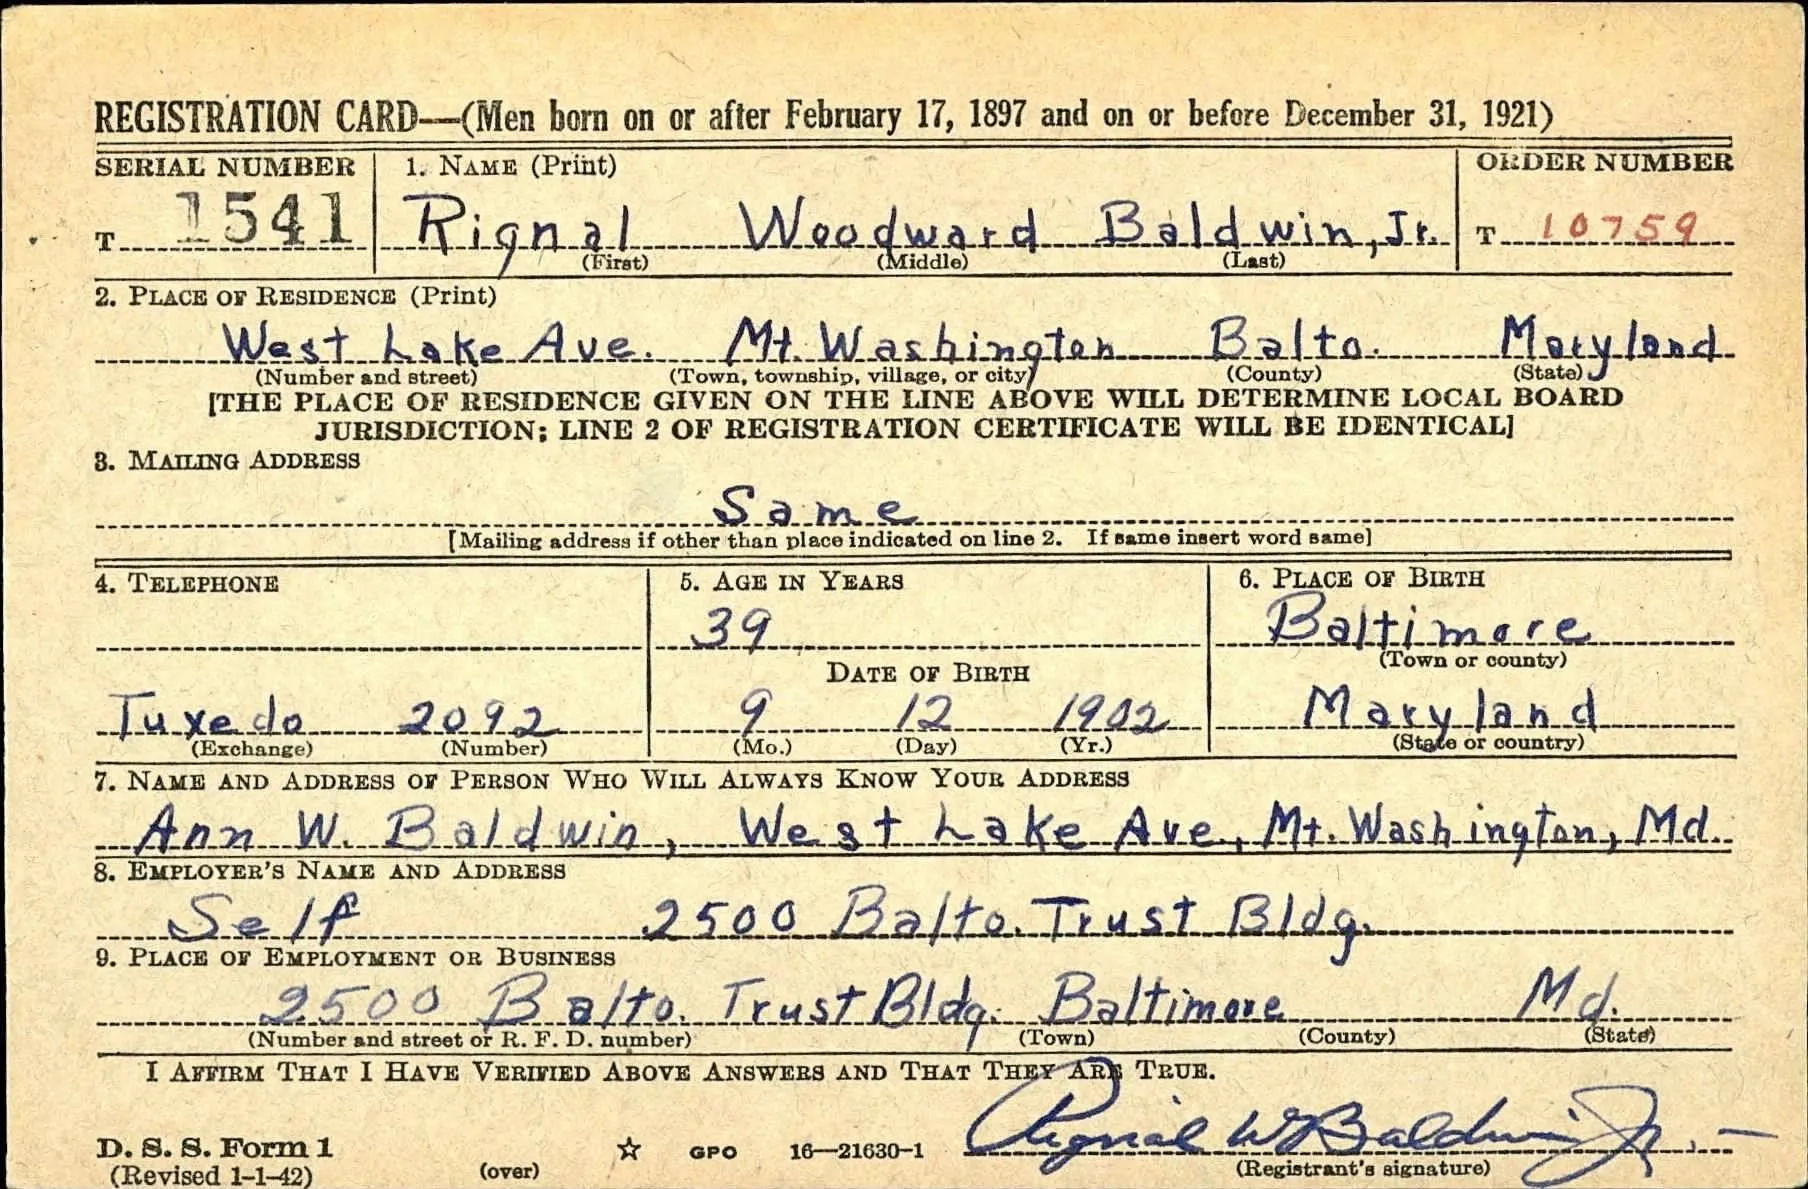 REGISTRATION CARD—(Men born on or after February 17, 1897 and on or before December 31, 1921)
SERIAL NUMBER 1. NAME (Print) ORDER NUMBER
T 1541 Rignal Woodward Baldwin, Jr. T 10759
(First) (Middle) (Last)
2. PLACE OF RESIDENCE (Print)
West Lake Ave. Mt. Washington Balto. Maryland
(Number and street) (Town, township, village, or city) (County) (State)
[THE PLACE OF RESIDENCE GIVEN ON THE LINE ABOVE WILL DETERMINE LOCAL BOARD
JURISDICTION; LINE 2 OF REGISTRATION CERTIFICATE WILL BE IDENTICAL]
3. MAILING ADDRESS
Same
[Mailing address if other than place indicated on line 2. If same insert word same]
4. TELEPHONE 5. AGE IN YEARS 6. PLACE OF BIRTH
39 Baltimore
(Town or county)
DATE OF BIRTH
Tuxedo 2092 9 12 1902 Maryland
(Exchange) (Number) (Mo.) (Day) (Yr.) (State or country)
7. NAME AND ADDRESS OF PERSON WHO WILL ALWAYS KNOW YOUR ADDRESS
Ann W. Baldwin, West Lake Ave., Mt. Washington, Md.
8. EMPLOYER'S NAME AND ADDRESS
Self 2500 Balto. Trust Bldg.
9. PLACE OF EMPLOYMENT OR BUSINESS
2500 Balto. Trust Bldg. Baltimore Md.
(Number and street or R. F. D. number) (Town) (County) (State)
I AFFIRM THAT I HAVE VERIFIED ABOVE ANSWERS AND THAT THEY ARE TRUE.
Rignal W Baldwin Jr.
D. S. S. Form 1
(Revised 1-1-42) (over) ☆ GPO 16—21630-1 (Registrant's signature)